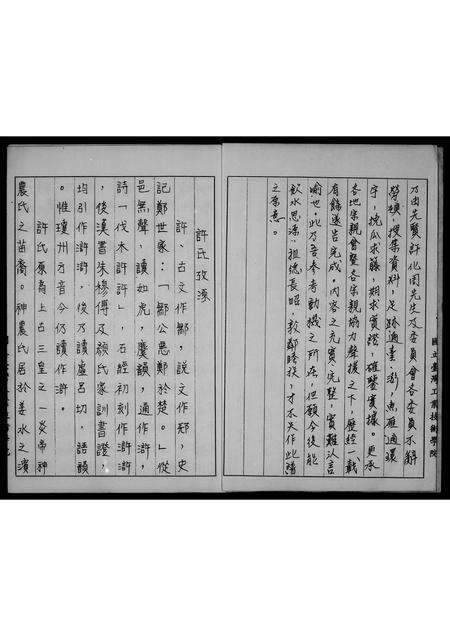 國立臺灣工業技術學院
乃由先賢許化周先生及委員會各委員不辭
勞頓，搜集資料，足跡遍臺澎，魚雁通環
宇，挽瓜求藤，期求實證，確鑿實據。更承
各地宗親會暨各宗親協力聲援之下，歷經一載
有餘遂告完成。內容之充實、完整，實難以言
喻也。此乃吾參考動機之所在，但願今後能
飲水思源，祖德長昭，敦鄰睦族，才不失作此譜
之原意。
許氏攷源
許、古文作鄦，說文作鄦，史
記鄭世家：「鄦公惡鄭於楚。」從
邑無聲，讀如虎，麌韻，通作滸，
詩「伐木滸滸」，石經初刻作滸滸
，後漢書朱穆傳及顏氏家訓書證，
均引作滸滸，俊乃讀虛呂切，語韻
。惟瓊州方音今仍讀作滸。
許氏原為上古三皇之一炎帝神
農氏之苗裔。神農氏居於姜水之濱